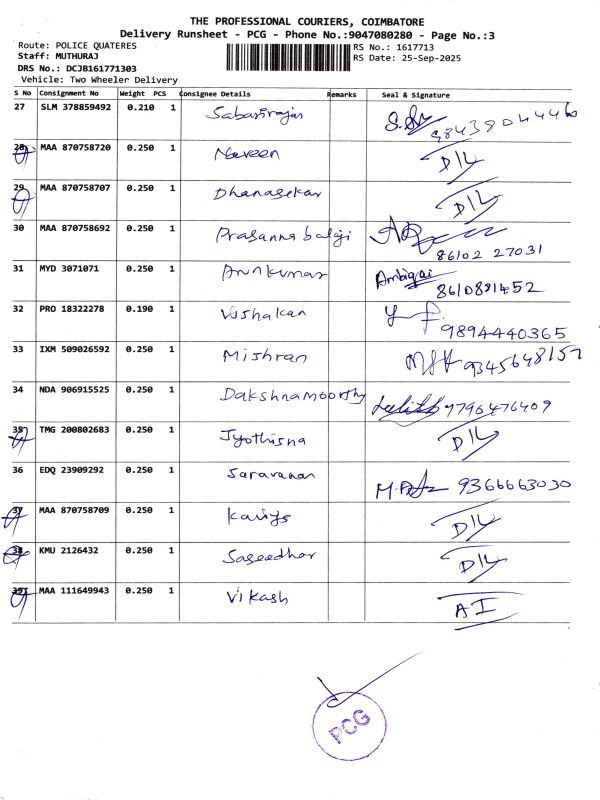 THE PROFESSIONAL COURIERS, COIMBATORE
Delivery Runsheet - PCG - Phone No.:9047080280 - Page No.:3
Route: POLICE QUATERES RS No.: 1617713
Staff: MUTHURAJ RS Date: 25-Sep-2025
DRS No.: DCJB161771303
Vehicle: Two Wheeler Delivery
S No Consignment No Weight PCS Consignee Details Remarks Seal & Signature
27 SLM 378859492 0.210 1 Sabarirajan 9843904446
28 MAA 870758720 0.250 1 Naveen D/L
29 MAA 870758707 0.250 1 Dhanasekar D/L
30 MAA 870758692 0.250 1 Prasanna balaji 86102 27031
31 MYD 3071071 0.250 1 Arunkumar Ambigai 8610881452
32 PRO 18322278 0.190 1 Vishakan 9894440365
33 IXM 509026592 0.250 1 Mishran
34 NDA 906915525 0.250 1 Dakshnamoorthy Lalith 9796476409
35 TMG 200802683 0.250 1 Jyothisna D/L
36 EDQ 23909292 0.250 1 Saravanan 9366663030
37 MAA 870758709 0.250 1 D/L
38 KMU 2126432 0.250 1 Saseedhar D/L
39 MAA 111649943 0.250 1 Vikash AI
PCG